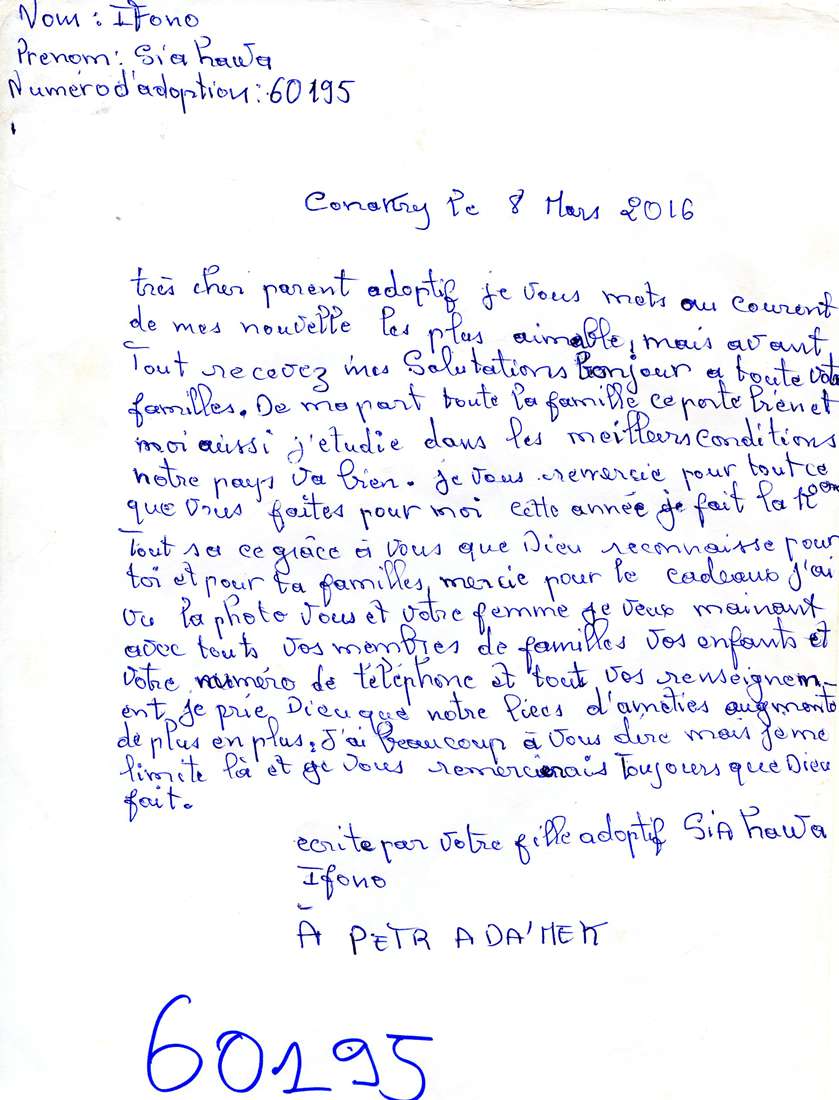 Nom : IFono
Prenom: Sia Kawa
Numéro d'adoption: 60195
Conakry le 8 Mars 2016
très cher parent adoptif je vous mets au courent
de mes nouvelle les plus aimable, mais avant
Tout recevez mes Salutations bonjour a toute votre
familles. De ma part toute la famille ce porte bien et
moi aussi j'etudie dans les meilleurs conditions
notre pays va bien. je vous remercie pour tout ce
que vous faites pour moi cette année je fait la
Tout sa ce grâce à vous que Dieu reconnaisse pour
toi et pour ta familles, mercie pour le cadeaux j'ai
vu la photo vous et votre femme je veux mainant
avec touts vos membres de familles vos enfants et
votre numéro de téléphone et tout vos renseignem-
ent, je prie Dieu que notre liecs d'améties augmente
de plus en plus, J'ai beaucoup à vous dire mais je me
limite là et je vous remercierais Toujours que Dieu
fait.
ecrite par votre fille adoptif SiA Kawa
Ifono
À PETR ADA'MEK
60195